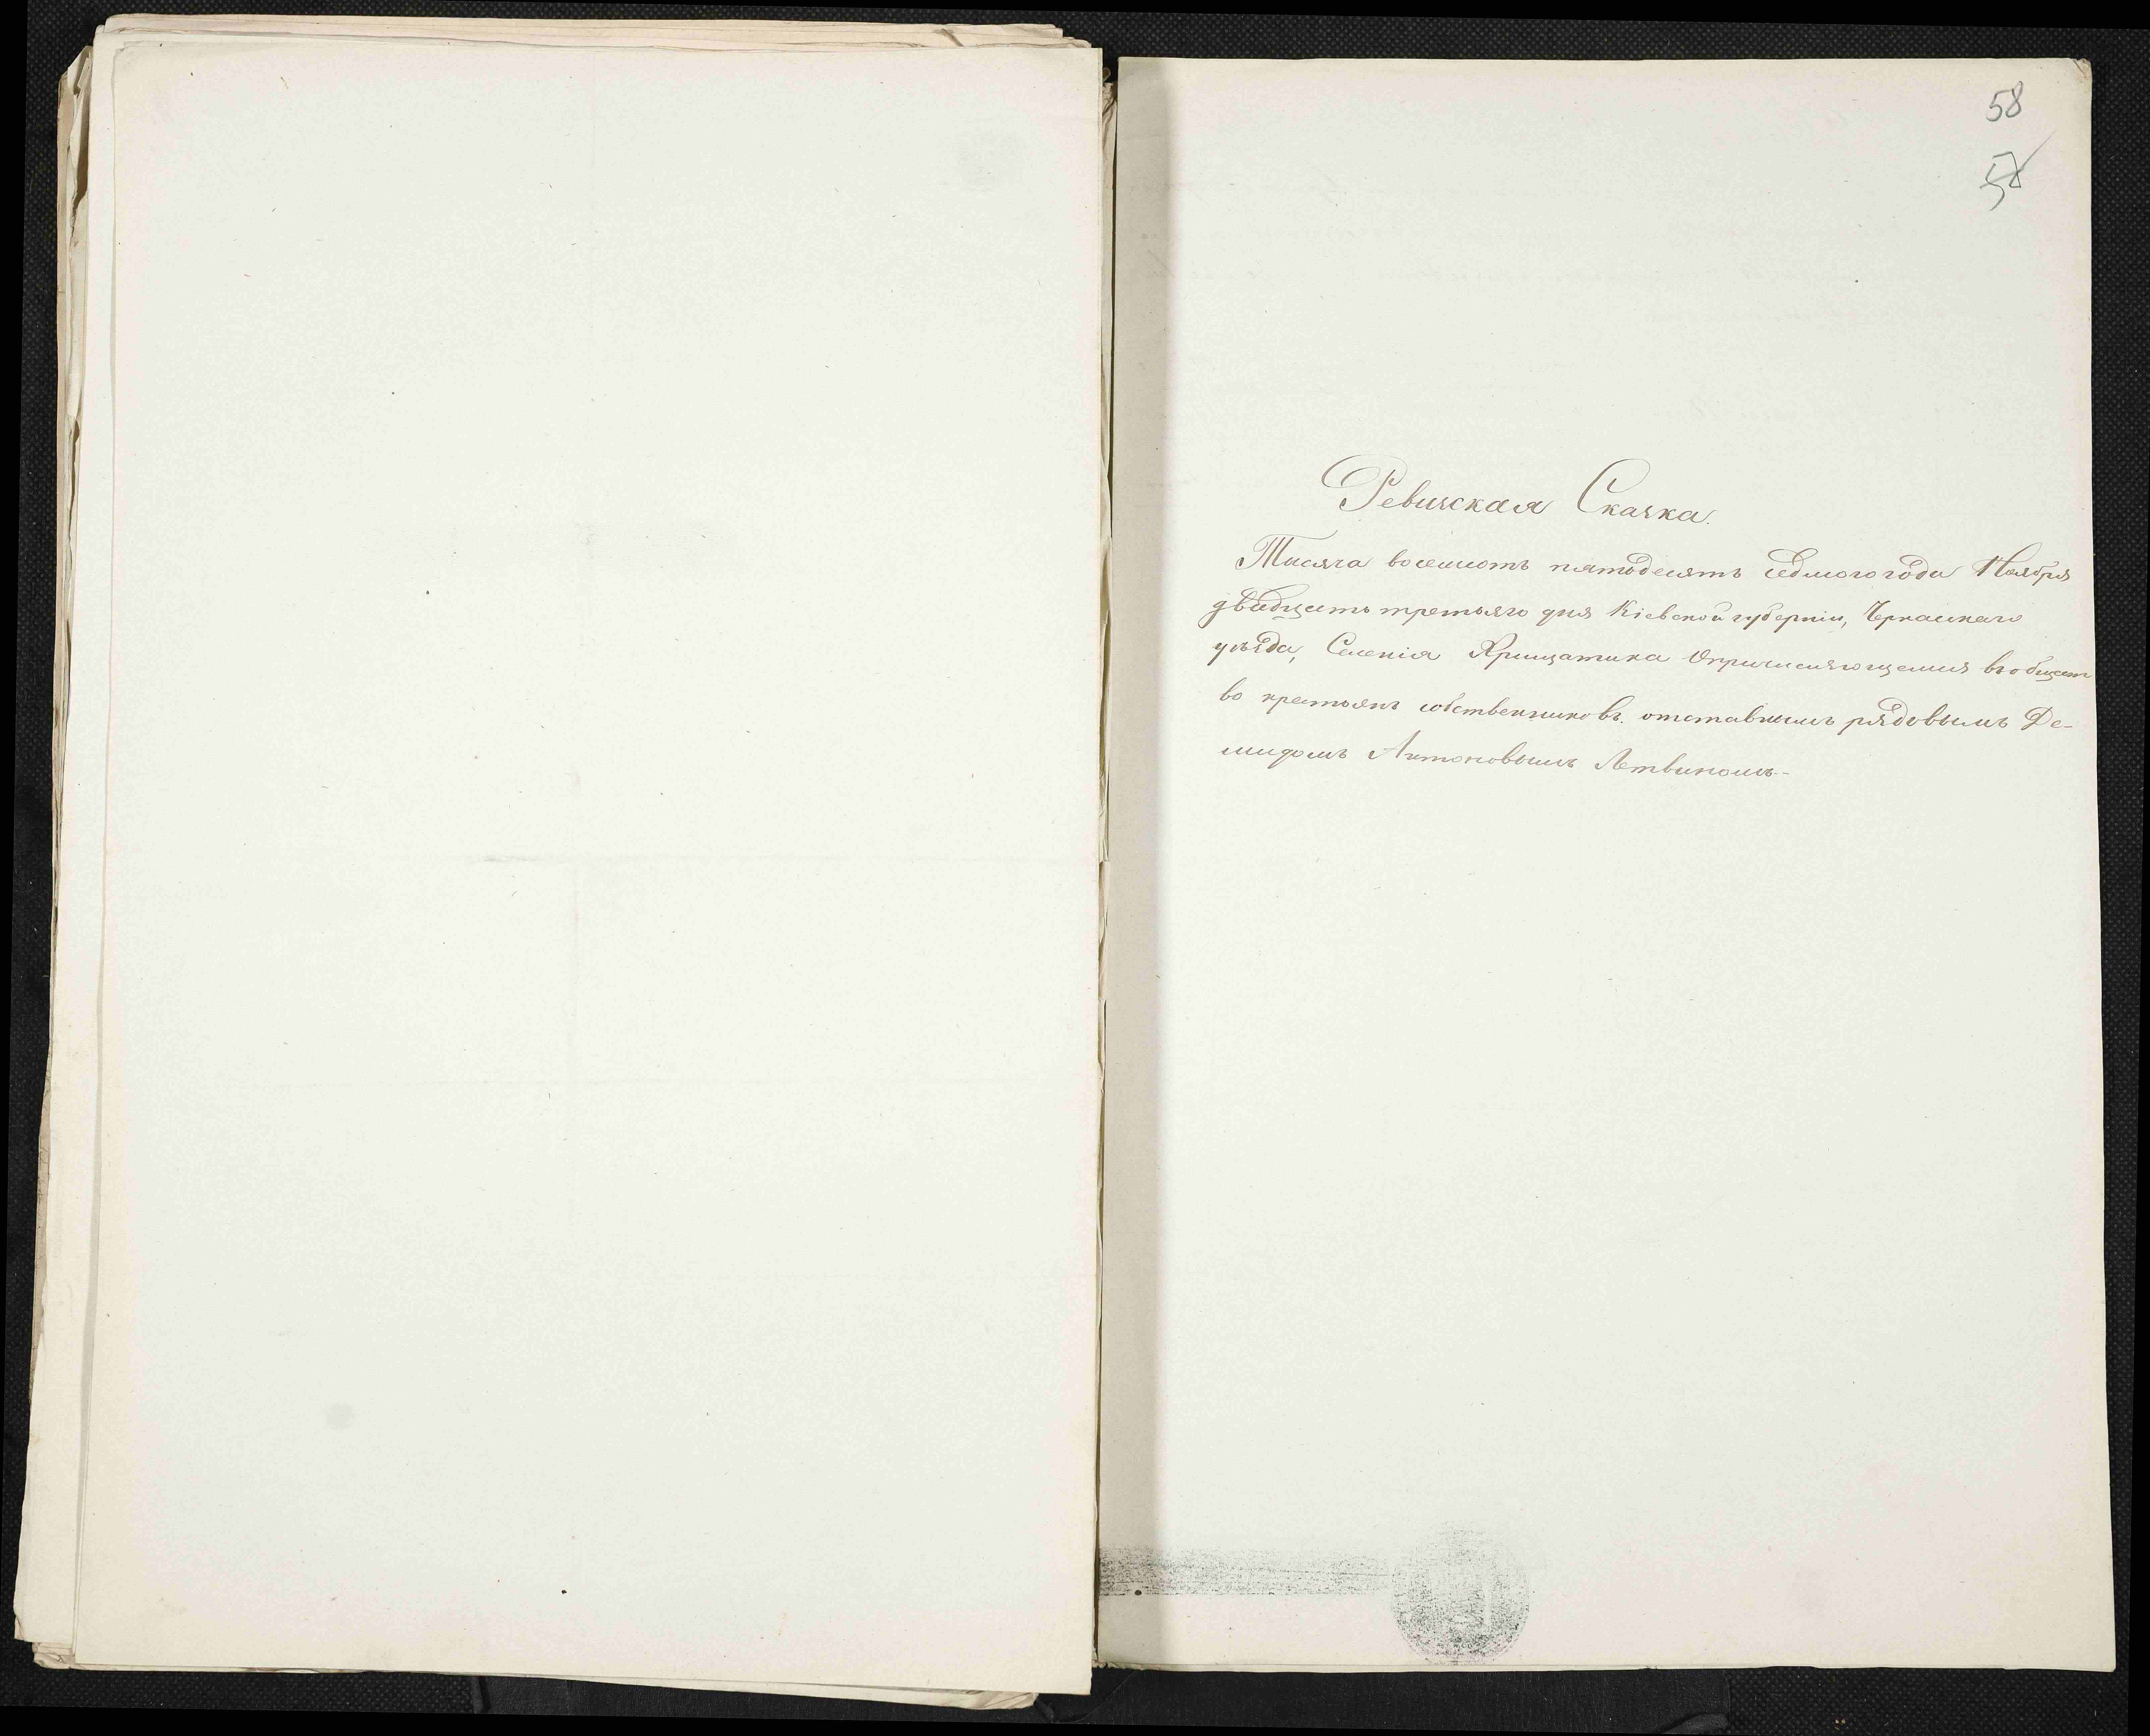 58
57
Ревизская Сказка.
Тысяча восемсотъ пятьдесятъ седмого года Ноября
двадцать третьяго дня Кіевской губерніи, Черкаскаго
уѣзда, Селенія Хрищатика О причисляющемся въ общест
во крестьянъ собственниковъ. отставнымъ рядовымъ Де-
мидомъ Антоновымъ Летвиномъ.-